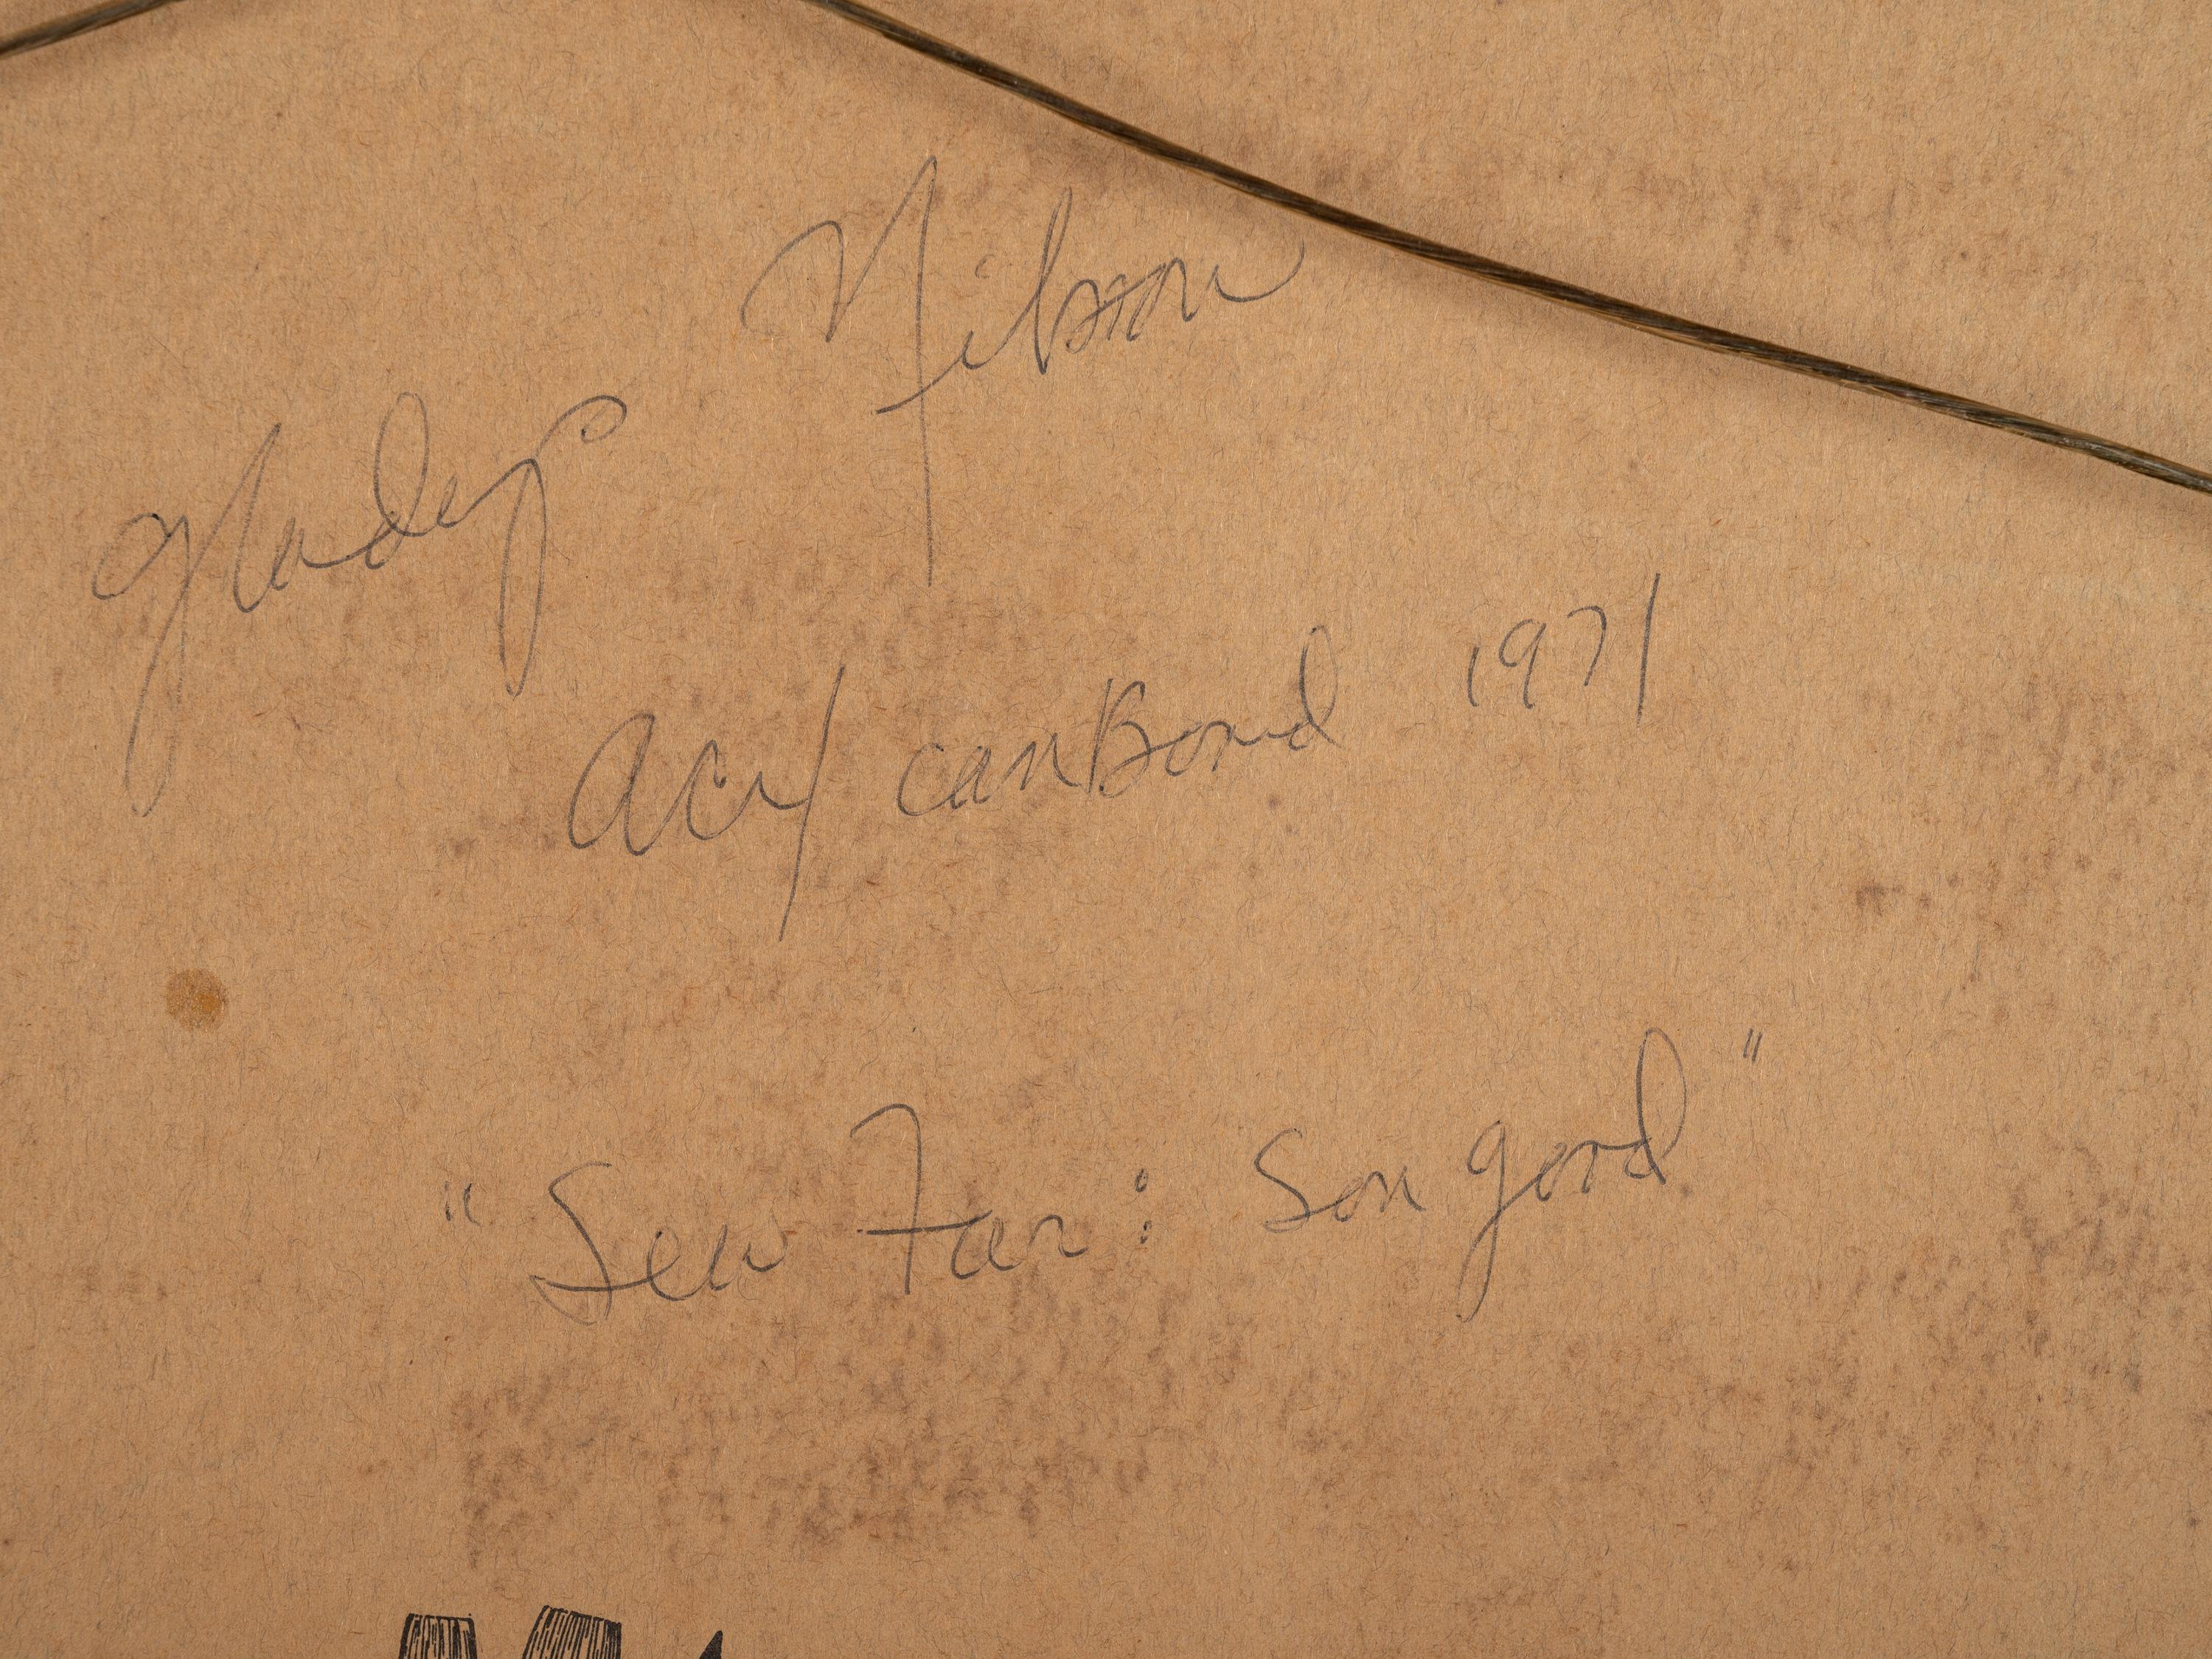 gladys Nilsson
acry canBoard 1971
"Sew Far: Sow good"